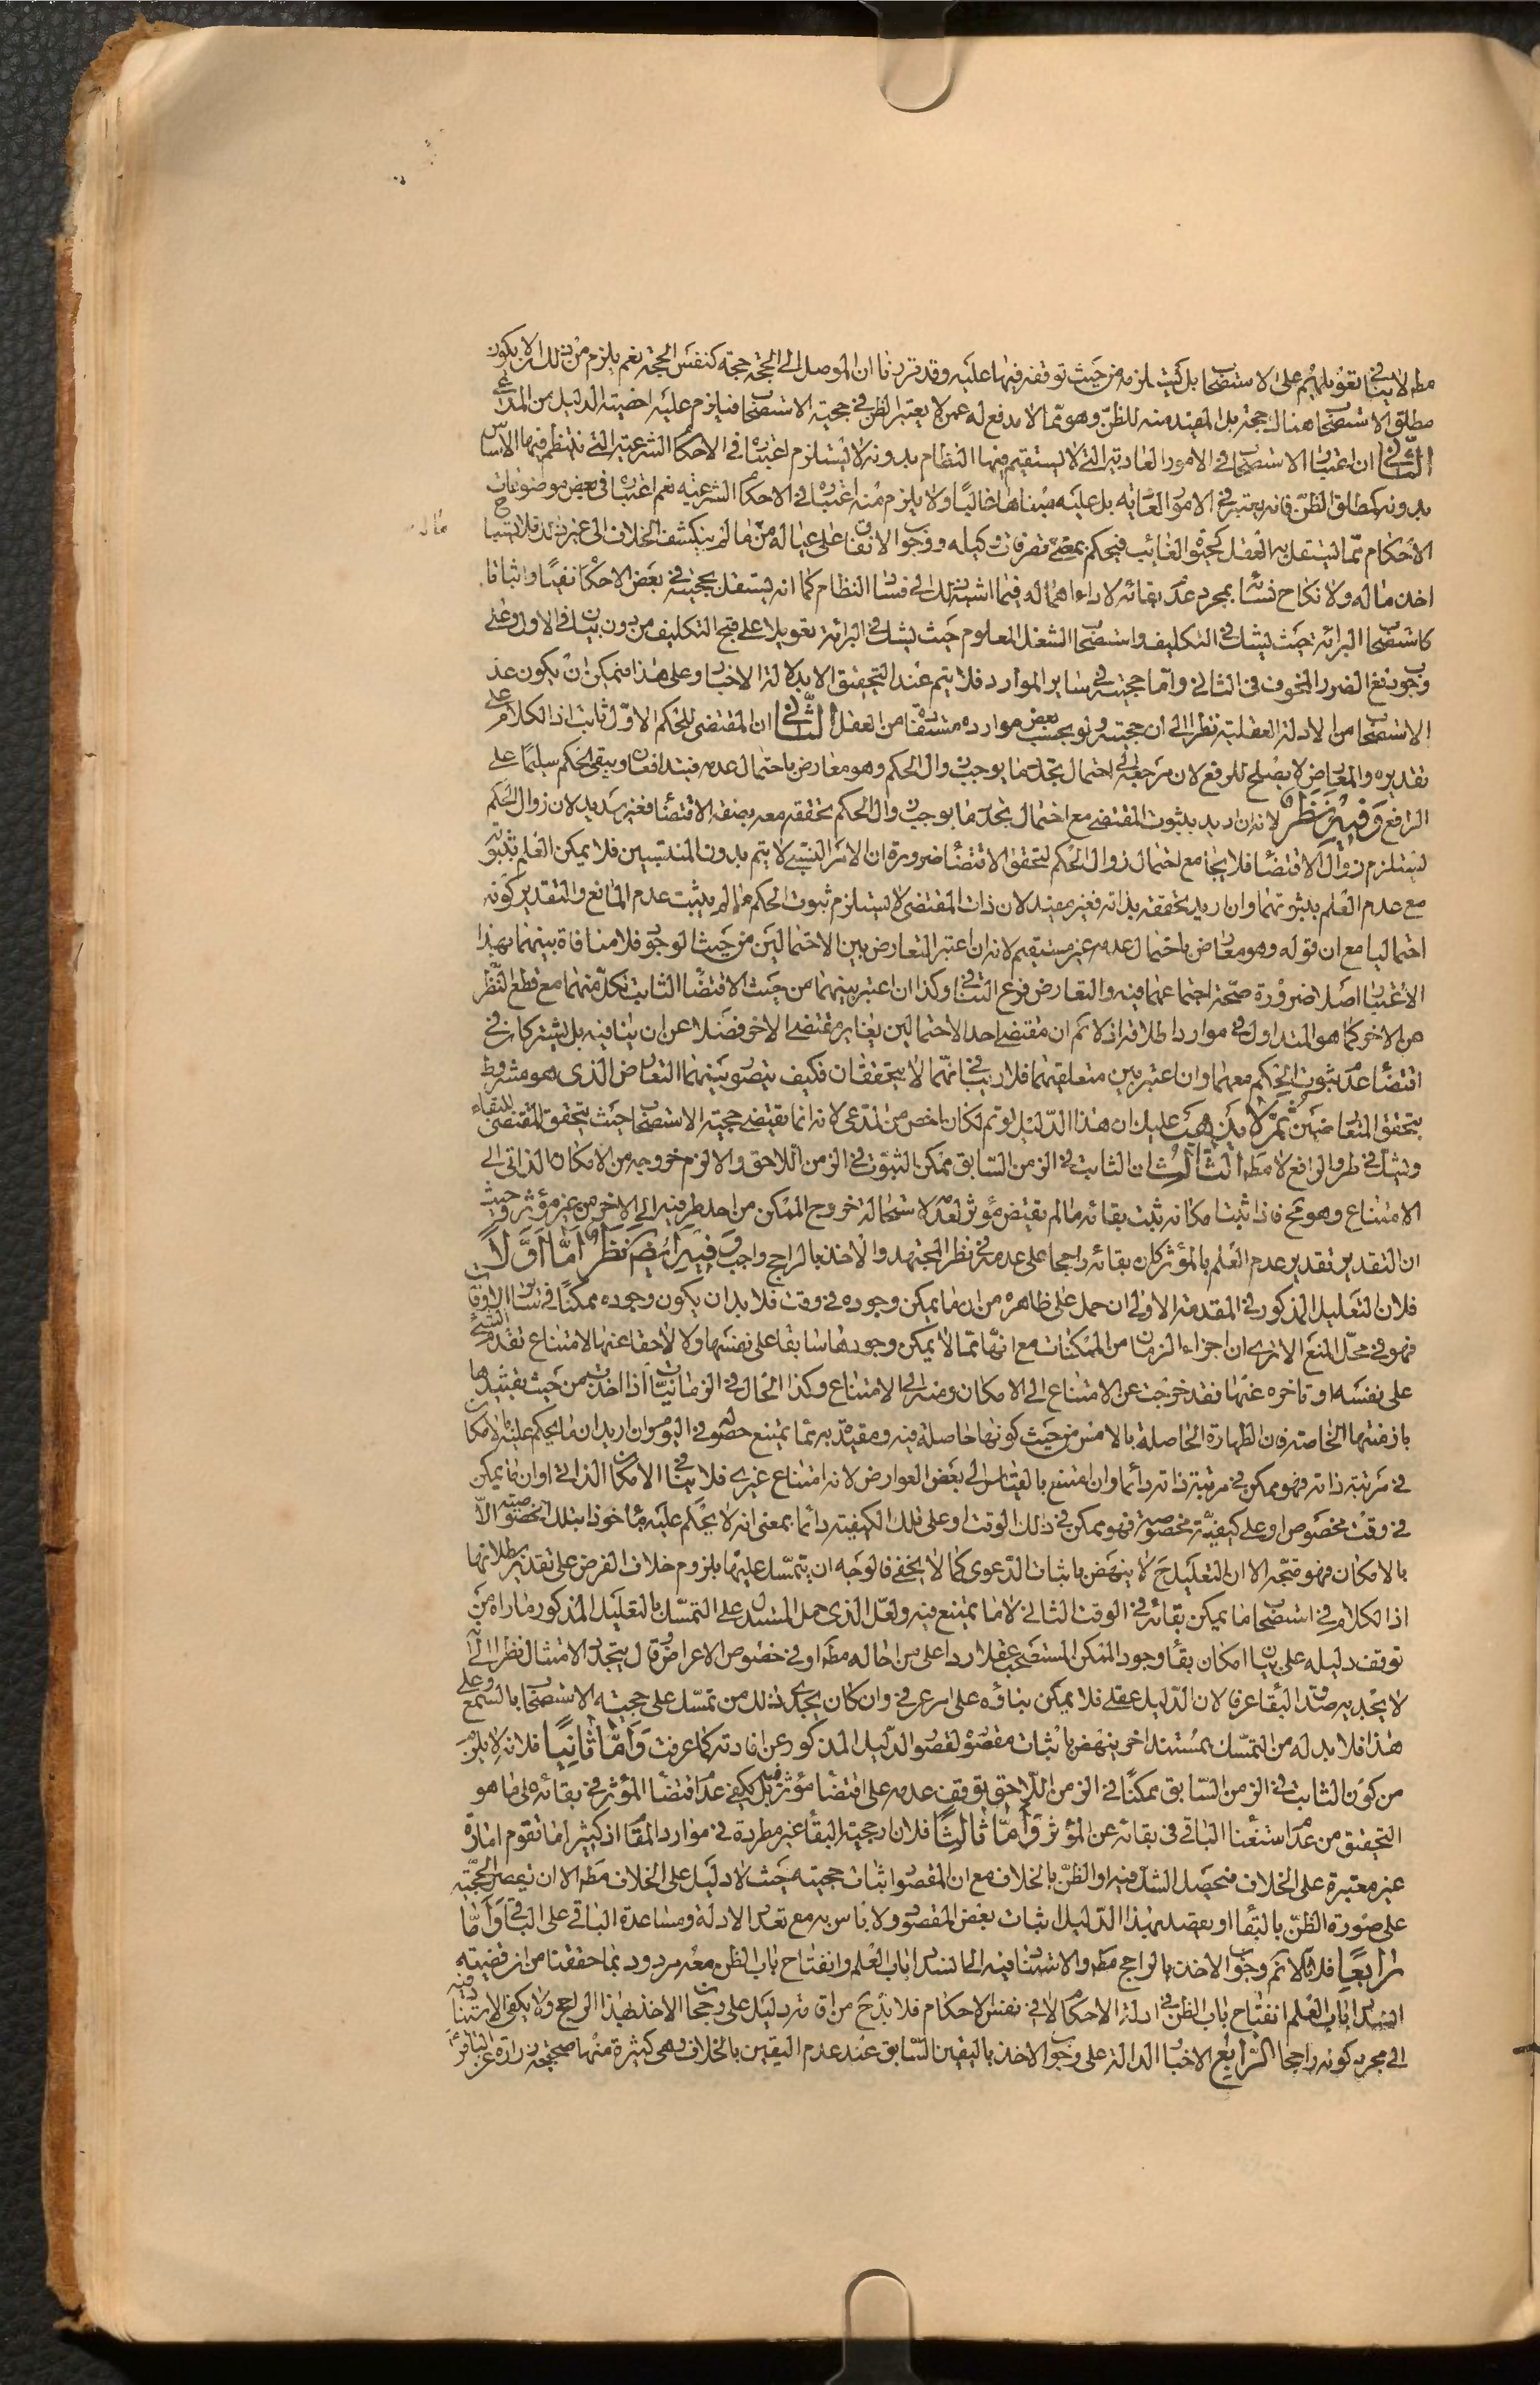 مطه لا ينافى تعويلهم على الاستصحاب بل يثبت لزمه من حيث توقفه فيها عليه وقد قررنا ان الموصل الى الحجة حجة كنفس الحجة نعم يلزم من ذلك ان لا يكون
مطلق الاستصحاب هناك حجة بل المفيد منه للظن وهو مما لا مدفع له عمن لا يعتبر الظن فى حجية الاستصحاب فيلزم عليه اخصية الدليل من المدعى
الثانى ان اعتبار الاستصحاب فى الامور العادية التى لا يستقيم فيها النظام بدونه لا يستلزم اعتباره فى الاحكام الشرعية التى ينتظم فيها الاساس
بدونه كمطلق الظن فانه يعتبر فى الامور العادية بل عليه مبناها غالبا ولا يلزم منه اعتباره فى الاحكام الشرعيه نعم اعتباره فى بعض موضوعات
الاحكام مما يستقل به العقل كحيوة الغائب فيحكم بمضى تصرفات وكيله ووجوب الانفاق على عياله من ماله ما لم ينكشف الخلاف الى غير ذلك فلا يستباح
اخذ ماله ولا نكاح نسائه بمجرد عدم بقائه لاداء اهماله فيما اشبه ذلك الى فساد النظام كما انه يستقل بحجيته فى بعض الاحكام نفيا واثباتا
كاستصحاب البرائة حيث يشك فى التكليف واستصحاب الشغل المعلوم حيث يشك فى البرائة تعويلا على قبح التكليف من دون بيان فى الاول وعلى
وجوب دفع الضرر المخوف فى الثانى واما حجيته فى ساير الموارد فلا يتم عند التحقيق الا بدلالة الاخبار وعلى هذا فيمكن ان يكون عد
الاستصحاب من الادلة العقلية نظرا الى ان حجيته ولو بحسب بعض موارده مستفادة من العقل الثانى ان المقتضى للحكم الاول ثابت اذ الكلام على
تقديره والمعارض لا يصلح للرفع لان مرجعه الى احتمال تجدد ما يوجب زوال الحكم وهو معارض باحتمال عدمه فيتدافعان ويبقى الحكم سليما على
الرافع وفيه نظر لانه ان اريد بثبوت المقتضى مع احتمال تجدد ما يوجب زوال الحكم تحققه معه بصفة الاقتضاء فغير سديد لان زوال الحكم
يستلزم زوال الاقتضاء فلا يجامع احتمال زوال الحكم لتحقق الاقتضاء ضرورة ان الامر النسبى لا يتم بدون المنتسبين فلا يمكن العلم بثبوته
مع عدم العلم بثبوتهما وان اريد تحققه بذاته فغير مفيد لان ذات المقتضى لا يستلزم ثبوت الحكم ما لم يثبت عدم المانع والتقدير كونه
احتماليا مع ان قوله وهو معارض باحتمال عدمه غير مستقيم لانه ان اعتبر التعارض بين الاحتمالين من حيث الوجود فلا منافاة بينهما بهذا
الاعتبار اصلا ضرورة صحة اجتماعهما فيه والتعارض فرع التنافى وكذا ان اعتبر بينهما من حيث الاقتضاء الثابت لكل منهما مع قطع النظر
عن الاخر كما هو المتداول فى موارد اطلاقه اذ لا نم ان مقتضى احد الاحتمالين يغاير مقتضى الاخر فضلا عن ان ينافيه بل يشتركان فى
اقتضاء عدم ثبوت الحكم معهما وان اعتبر بين متعلقيهما فلا ريب فى انهما لا يتحققان فكيف يتصور بينهما التعارض الذى هو مشروط
بتحقق المتعارضين ثم لا يذهب عليك ان هذا الدليل لو تم لكان اخص من المدعى لانه انما يقتضى حجية الاستصحاب حيث يتحقق المقتضى للبقاء
ويشك فى طرو الرافع لا مطه الثالث ان الثابت فى الزمن السابق ممكن الثبوت فى الزمن اللاحق والا لزم خروجه من الامكان الذاتى الى
الامتناع وهو مح فاذا ثبت امكانه ثبت بقائه ما لم يقتض مؤثر لعدمه لاستحالة خروج الممكن من احد طرفيه الى الاخر من غير مؤثر وحيث
ان التقدير تقدير عدم العلم بالمؤثر كان بقائه راجحا على عدمه فى نظر المجتهد والاخذ بالراجح واجب وفيه ايض نظر اما اولا
فلان التعليل المذكور فى المقدمة الاولى ان حمل على ظاهره من ان ما يمكن وجوده فى وقت فلا بد ان يكون وجوده ممكنا فى ساير الاوقات
فهو فى محل المنع الا ترى ان اجزاء الزمان من الممكنات مع انها مما لا يمكن وجودها سابقا على نفسها ولا لاحقا عنها لامتناع تقدم الشئ
على نفسه او تاخره عنها فقد خرجت عن الامتناع الى الامكان ومنه الى الامتناع وكذا الحال فى الزمانيات اذا اخذت من حيث تقييدها
بازمنتها الخاصة فان الطهارة الحاصلة بالامس من حيث كونها حاصلة فيه ومقيدة به مما يمتنع حصوله فى اليوم وان اريد ان ما يحكم عليه بالامكان
فى مرتبة ذاته فهو ممكن فى مرتبة ذاته دائما وان امتنع بالقياس الى بعض العوارض لانه امتناع غيرى فلا ينافى الامكان الذاتى او ان ما يمكن
فى وقت مخصوص او على كيفية مخصوصة فهو ممكن فى ذلك الوقت او على تلك الكيفية دائما بمعنى انه لا يحكم عليه ماخوذا بتلك الخصوصية الا
بالامكان فهو متجه الا ان التعليل ح لا ينهض باثبات الدعوى كما لا يخفى فالوجه ان يتمسك عليها بلزوم خلاف الفرض على تقدير بطلانها
اذ الكلام فى استصحاب ما يمكن بقائه فى الوقت الثانى لا ما يمتنع فيه ولعل الذى حمل المستدل على التمسك بالتعليل المذكور ما راه من
توقف دليله على بيان امكان بقاء وجود الممكن المستصحب عقلا ردا على من احاله مطه او فى خصوص الاعراض وقال بتجدد الامثال نظرا الى انه
لا يجديه صدق البقاء عرفا لان الدليل عقلى فلا يمكن بناؤه على امر عرفى وان كان يجدى ذلك من تمسك على حجية الاستصحاب بالسمع وعلى
هذا فلا بد له من التمسك بمستند اخر ينهض باثبات مقصوده لقصور الدليل المذكور عن افادته كما عرفت واما ثانيا فلانه لا يلزم
من كون الثابت فى الزمن السابق ممكنا فى الزمن اللاحق توقف عدمه على اقتضاء مؤثر فيه بل يكفى عدم اقتضاء المؤثر فى بقائه على ما هو
التحقيق من عدم استغناء الباقى فى بقائه عن المؤثر واما ثالثا فلان رجحية البقاء غير مطردة فى موارد المقام اذ كثيرا ما تقوم امارة
غير معتبرة على الخلاف فيحصل الشك فيه او الظن بالخلاف مع ان المقصود اثبات حجيته حيث لا دليل على الخلاف مطه الا ان تخص الحجية
على صورة الظن بالبقاء او بعضد بهذا الدليل اثبات بعض المقصود ولا باس به مع تعدد الادلة ومساعدة الباقى على الباقى واما
رابعا فلانا لا نم وجوب الاخذ بالراجح مطه والاستناد فيه الى انسداد باب العلم وانفتاح باب الظن معه مردود بما حققنا من ان قضية
انسداد باب العلم انفتاح باب الظن فى ادلة الاحكام لا فى نفس الاحكام فلا بد ح من اقامة دليل على رجحان الاخذ بهذا الراجح ولا يكفى الاستناد فيه
الى مجرد كونه راجحا الرابع الاخبار الدالة على وجوب الاخذ باليقين السابق عند عدم اليقين بالخلاف وهى كثيرة منها صحيحة زرارة عن الباقر